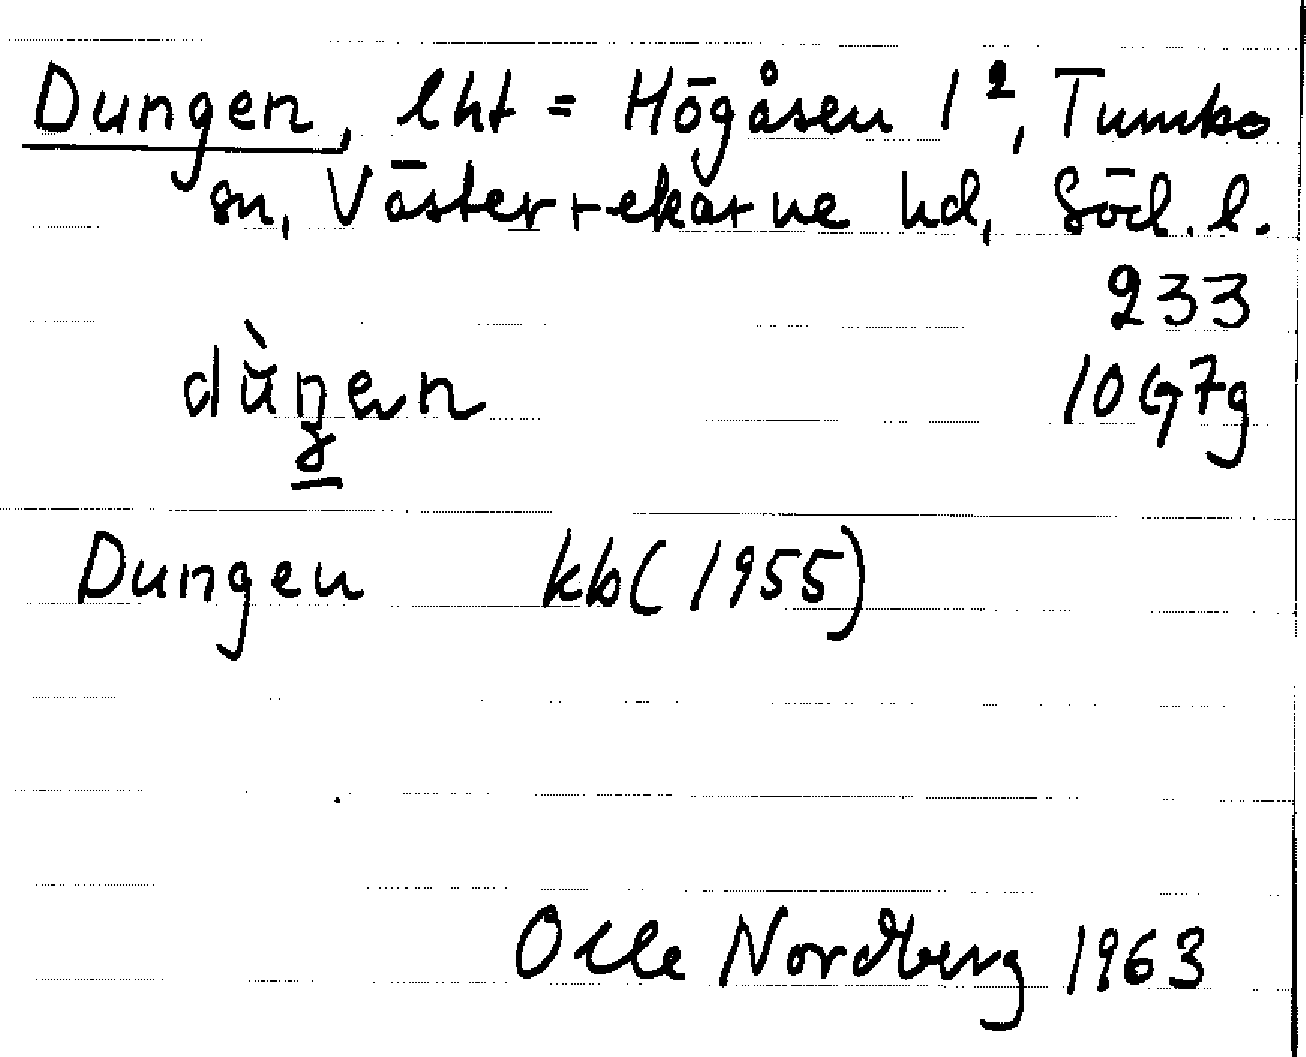 Dungen, lht = Högåsen 1², Tumbo
sn, Västerrekarne hd, Södl.l.
233
dùŋen
10G7g
Dungen kb (1955)
Olle Nordberg 1963